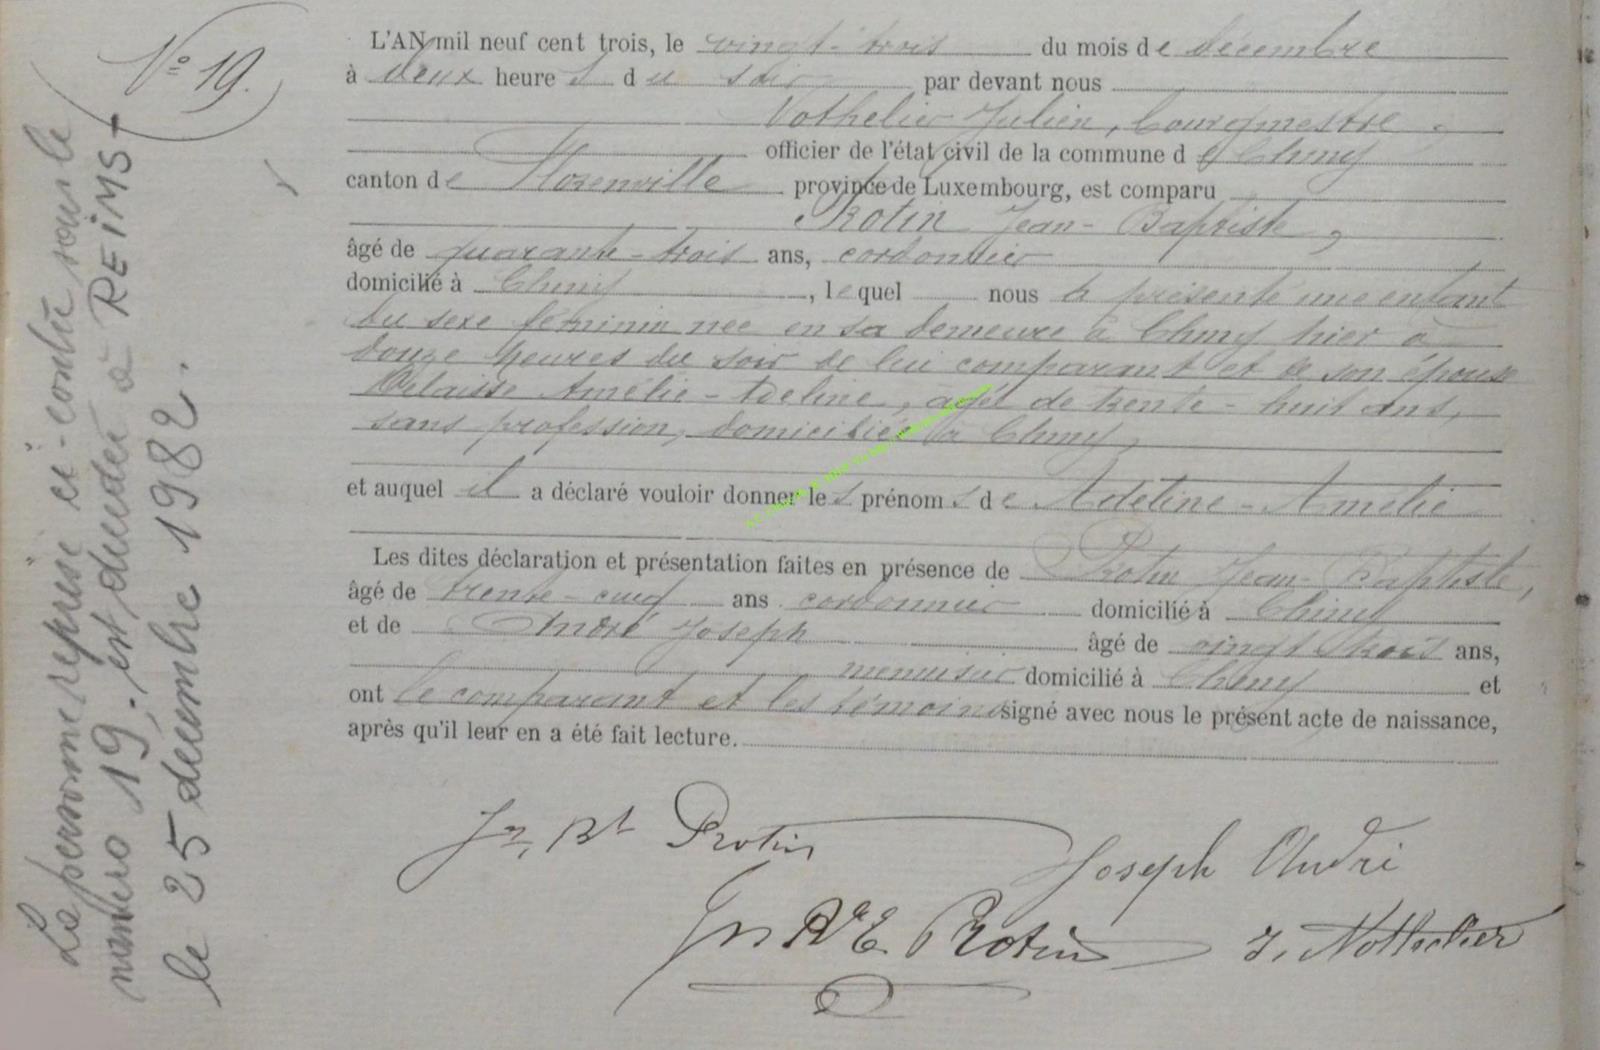 N° 19.
L'AN mil neuf cent trois, le vingt-trois du mois de décembre
à deux heures du soir par devant nous
Nothelier Julien, bourgmestre,
officier de l'état civil de la commune de Chiny
canton de Florenville province de Luxembourg, est comparu
Protin Jean-Baptiste,
âgé de quarante-trois ans, cordonnier
domicilié à Chiny, lequel nous a présenté une enfant
du sexe féminin née en sa demeure à Chiny hier à
douze heures du soir de lui comparant et de son épouse
Delaisse Amélie-Adeline, agée de trente-huit ans,
sans profession, domiciliée à Chiny,
et auquel il a déclaré vouloir donner les prénoms de Adeline-Amélie
Les dites déclaration et présentation faites en présence de Protin Jean-Baptiste,
âgé de trente-cinq ans cordonnier domicilié à Chiny
et de André Joseph âgé de vingt trois ans,
menuisier domicilié à Chiny et
ont le comparant et les témoins signé avec nous le présent acte de naissance,
après qu'il leur en a été fait lecture.
Jn. Bt Protin
Joseph André
Protin J. Nothelier
La personne reprise ci-contre sous le
numéro 19, est décédée à REiMS
le 25 décembre 1982.